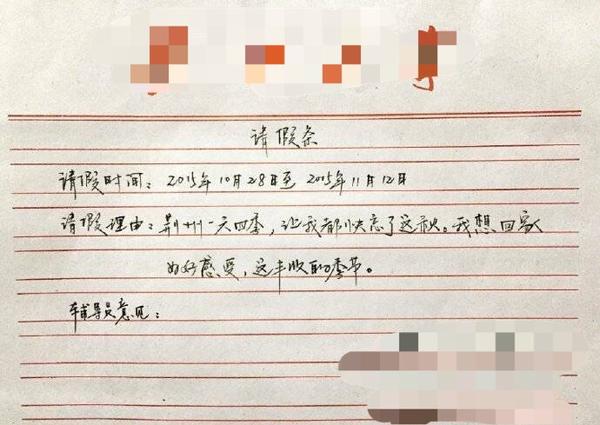 请假条
请假时间：2015年10月28日至2015年11月12日
请假理由：荆州一天四季，让我都快忘了这秋。我想回家
好好感受，这丰收的季节。
辅导员意见：